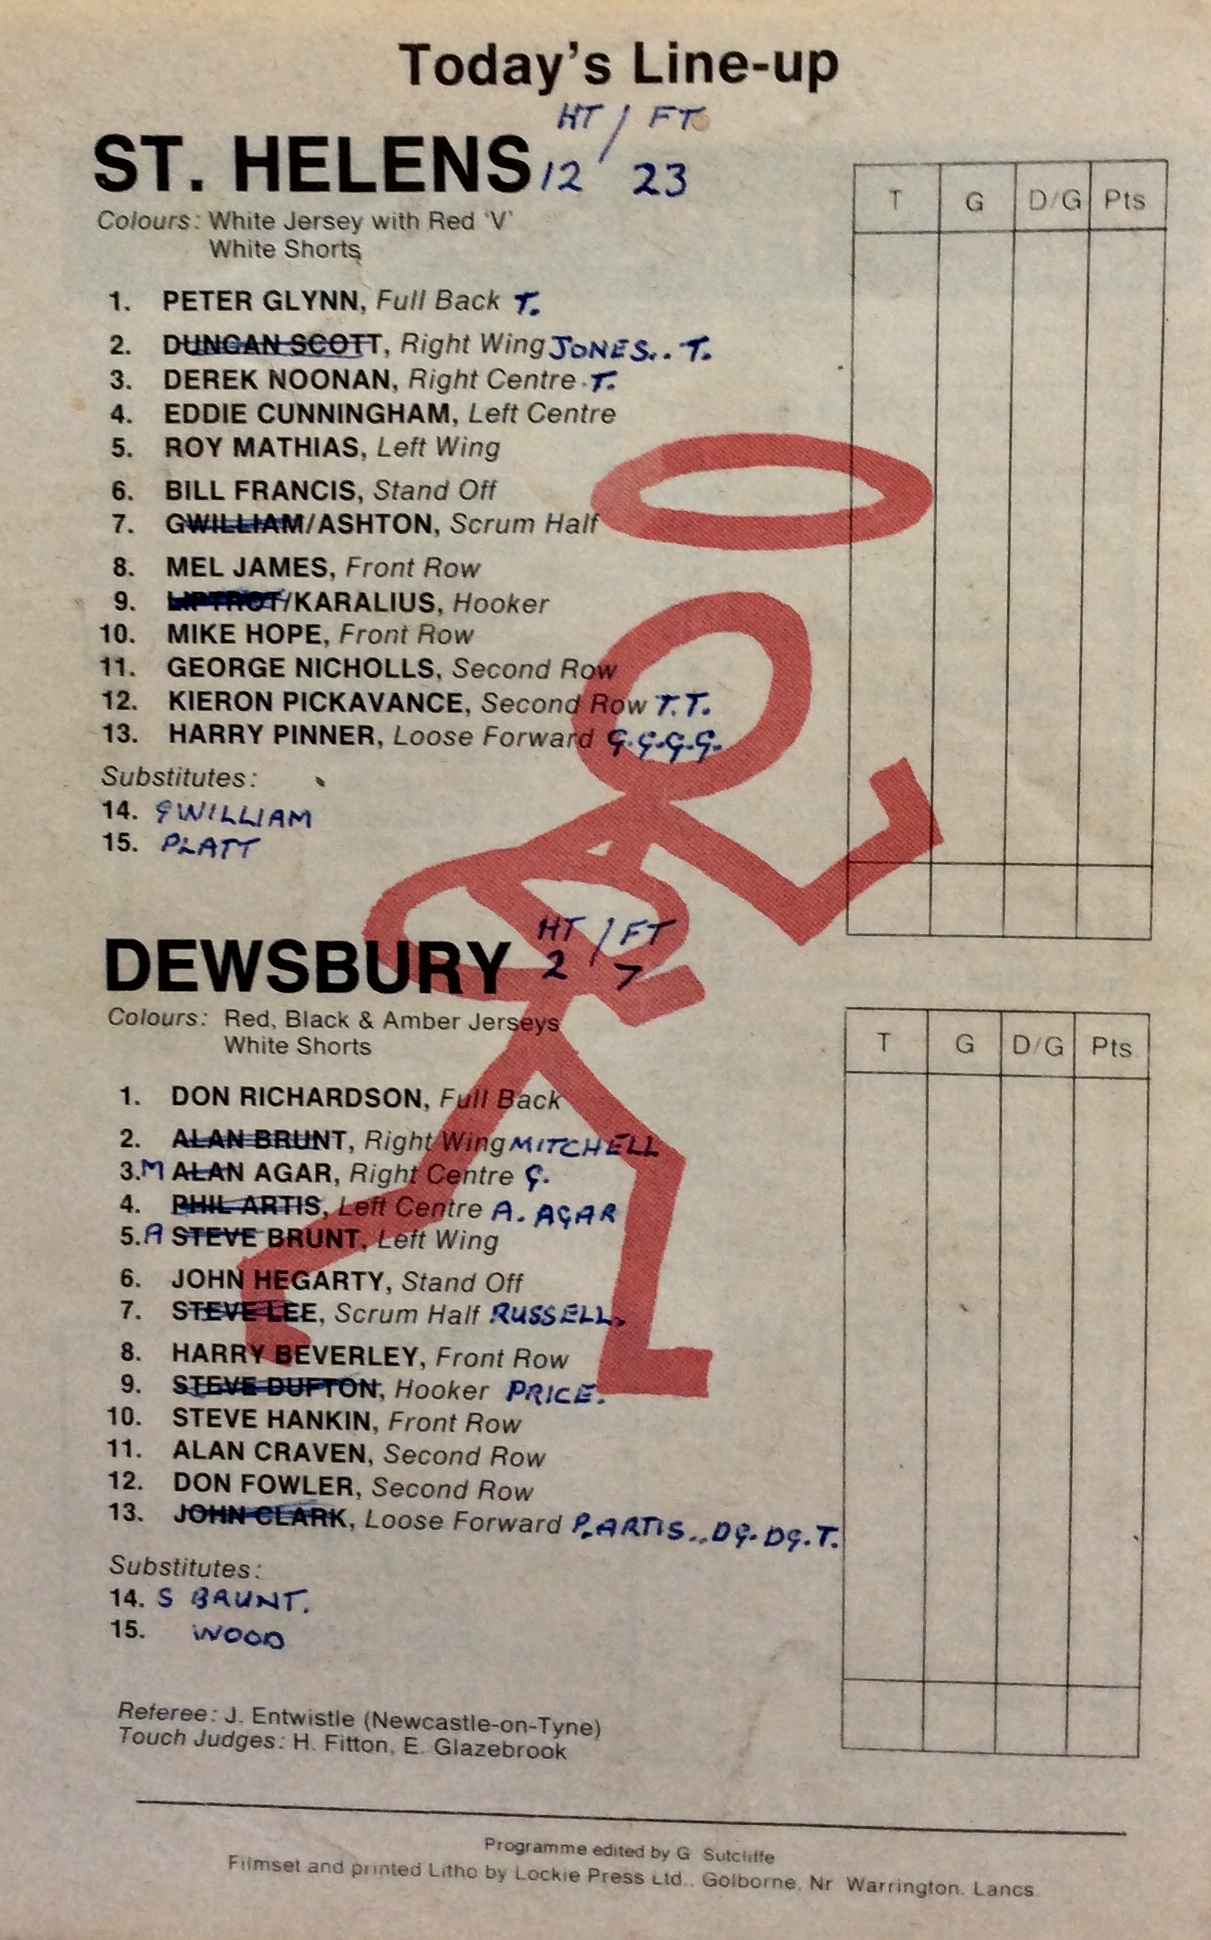 Today's Line-up
HT / FT
ST. HELENS 12 23
Colours: White Jersey with Red 'V'
White Shorts
T G D/G Pts
1. PETER GLYNN, Full Back T.
2. DUNCAN SCOTT, Right Wing JONES.. T.
3. DEREK NOONAN, Right Centre T.
4. EDDIE CUNNINGHAM, Left Centre
5. ROY MATHIAS, Left Wing
6. BILL FRANCIS, Stand Off
7. GWILLIAM/ASHTON, Scrum Half
8. MEL JAMES, Front Row
9. LIPTROT/KARALIUS, Hooker
10. MIKE HOPE, Front Row
11. GEORGE NICHOLLS, Second Row
12. KIERON PICKAVANCE, Second Row T.T.
13. HARRY PINNER, Loose Forward G.G.G.G.
Substitutes:
14. GWILLIAM
15. PLATT
HT / FT
DEWSBURY 2 7
Colours: Red, Black & Amber Jerseys
White Shorts
T G D/G Pts
1. DON RICHARDSON, Full Back
2. ALAN BRUNT, Right Wing MITCHELL
3. M ALAN AGAR, Right Centre G.
4. PHIL ARTIS, Left Centre A. AGAR
5. A STEVE BRUNT, Left Wing
6. JOHN HEGARTY, Stand Off
7. STEVE LEE, Scrum Half RUSSELL.
8. HARRY BEVERLEY, Front Row
9. STEVE DUFTON, Hooker PRICE.
10. STEVE HANKIN, Front Row
11. ALAN CRAVEN, Second Row
12. DON FOWLER, Second Row
13. JOHN CLARK, Loose Forward P. ARTIS.. DG. DG. T.
Substitutes:
14. S BRUNT.
15. WOOD
Referee: J. Entwistle (Newcastle-on-Tyne)
Touch Judges: H. Fitton, E. Glazebrook
Programme edited by G Sutcliffe
Filmset and printed Litho by Lockie Press Ltd., Golborne, Nr Warrington. Lancs.